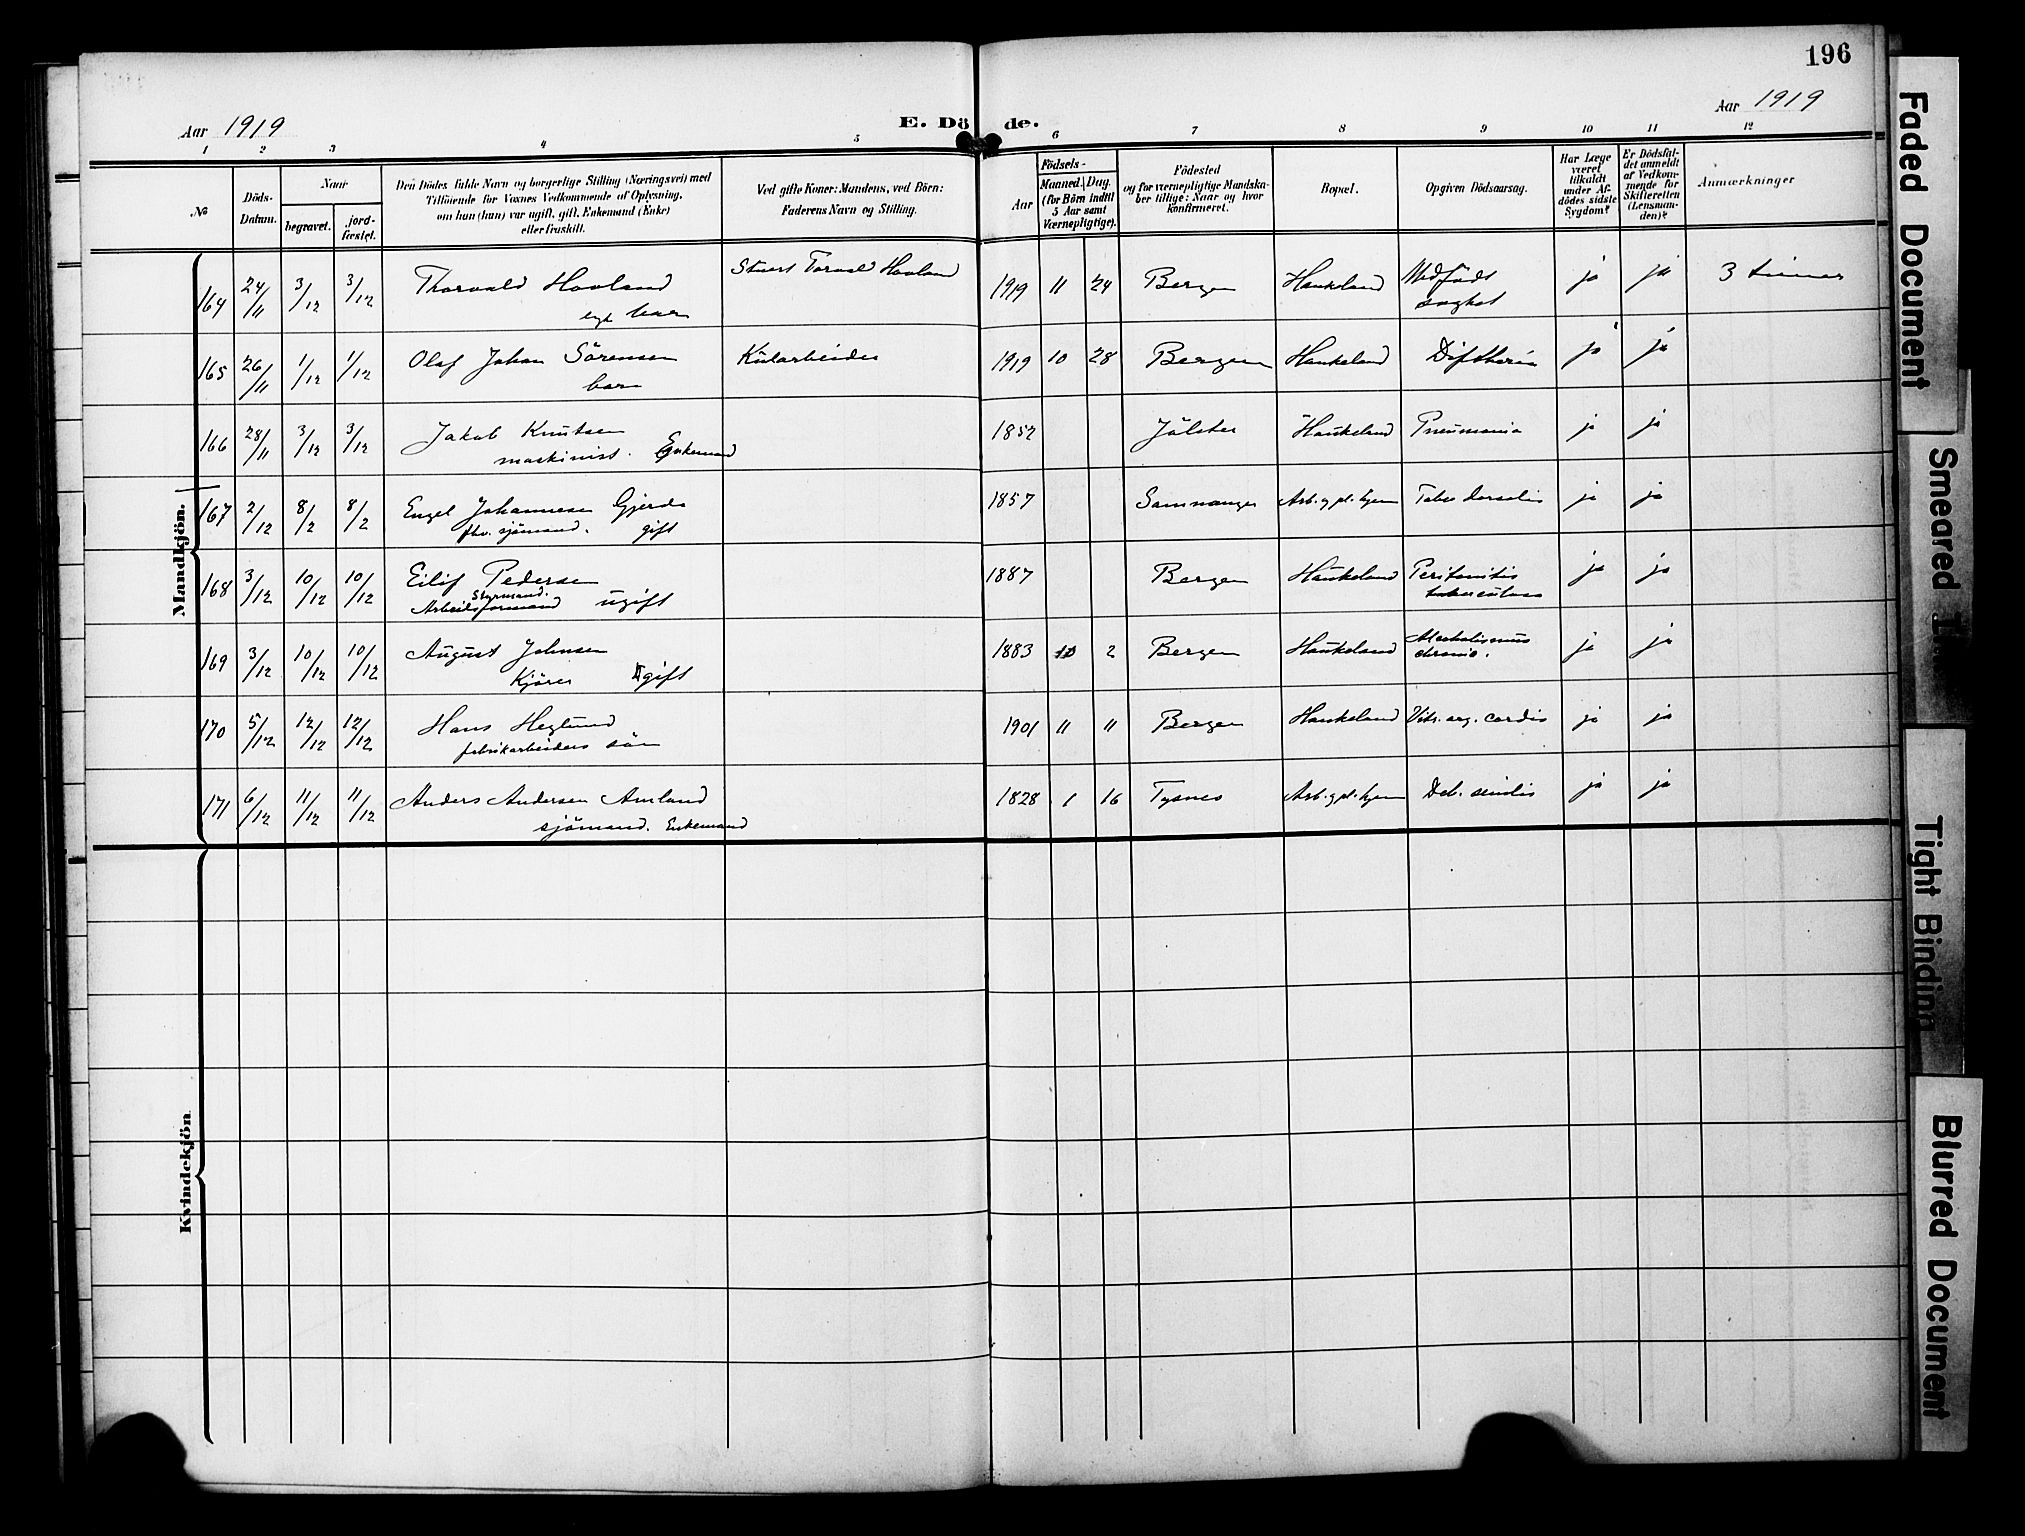 196
Aar 1919
E. Döde.
Aar 1919
1 2 3 4 5 6 7 8 9 10 11 12
№
Döds-Datum.
Naar
begravet.
jord-fæstet.
Den Dödes fulde Navn og borgerlige Stilling (Næringsvei) med
Tilföiende for Voxnes Vedkommende af Oplysning,
om hun (han) var ugift, gift, Enkemand (Enke)
eller fraskilt.
Ved gifte Koner: Mandens, ved Börn:
Faderens Navn og Stilling.
Födsels-
Aar
Maaned. Dag.
(for Börn indtil
5 Aar samt
Værnepligtige).
Födested
og for værnepligtige Mandska-
ber tillige: Naar og hvor
konfirmeret.
Bopæl.
Opgiven Dödsaarsag.
Har Læge
været
tilkaldt
under Af-
dödes sidste
Sygdom?
Er Dödsfal-
det anmeldt
af Vedkom-
mende for
Skifteretten
(Lensman-
den)?
Anmærkninger
Mandkjön.
164 24/11 3/12 3/12 Thorvald Hovland Stuert Torvald Hovland 1919 11 24 Bergen Haukeland Medfödt ja ja 3 timer
egt barn svaghet
165 26/11 1/12 1/12 Olaf Johan Sörensen Kularbeider 1919 10 28 Bergen Haukeland Diftheria ja ja
barn
166 28/11 3/12 3/12 Jakob Knutsen 1852 Jölster Haukeland Pneumonia ja ja
maskinist. Enkemand
167 2/12 8/2 8/2 Engel Johannesen Gjerde 1857 Samnanger Arb. g pl. hjem Tabes dorsalis ja ja
fhv. sjömand. gift
168 3/12 10/12 10/12 Eilif Pedersen 1887 Bergen Haukeland Peritonitis ja ja
Styrmand.
Arbeidsformand ugift tuberculosa
169 3/12 10/12 10/12 August Johnsen 1883 10 2 Bergen Haukeland Alcoholismus ja ja
Kjörer gift chronic.
170 5/12 12/12 12/12 Hans Heglund 1901 11 11 Bergen Haukeland Vits. org. cordis ja ja
fabrikarbeiders sön
171 6/12 11/12 11/12 Anders Andersen Amland 1828 1 16 Tysnes Arb. g pl. hjem Deb. senilis ja ja
sjömand. Enkemand
Kvindekjön
Faded Document
Smeared
Tight Binding
Blurred Document